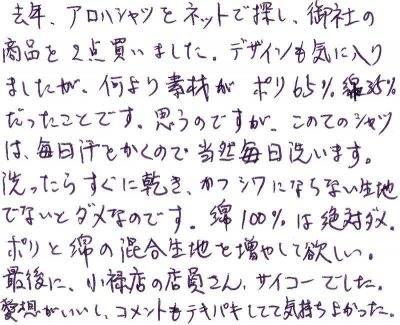 去年、アロハシャツをネットで探し、御社の
商品を2点買いました。デザインも気に入り
ましたが、何より素材が ポリ65% 綿35%
だったことです。思うのですが、このてのシャツ
は、毎日汗をかくので当然毎日洗います。
洗ったらすぐに乾き、かつシワにならない生地
でないとダメなのです。綿100%は絶対ダメ。
ポリと綿の混合生地を増やして欲しい。
最後に、小禄店の店員さん、サイコーでした。
愛想がいいし、コメントもテキパキしてて気持ちよかった。